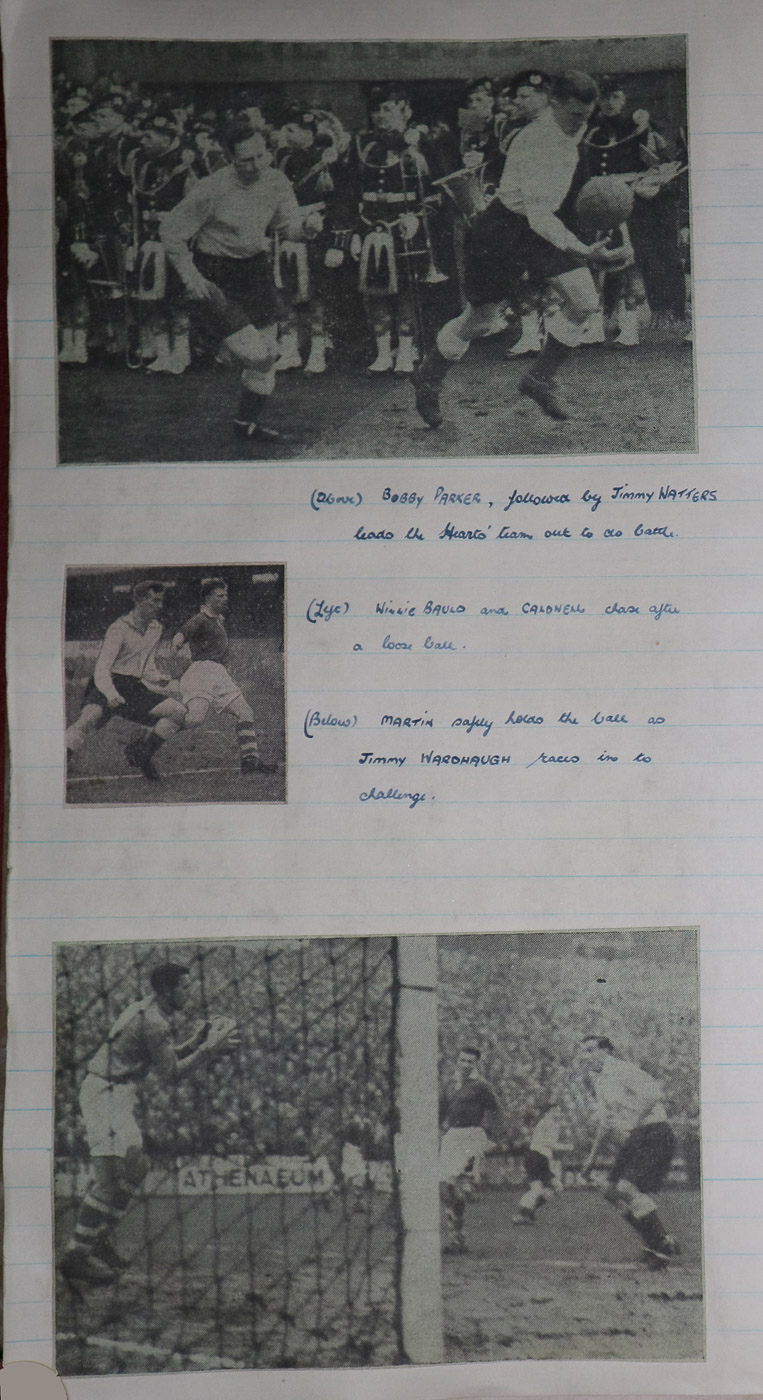 (Above) BOBBY PARKER, followed by Jimmy WATTERS
leads the Hearts' team out to do battle.
(Left) Willie BAULD and CALDWELL chase after
a loose ball.
(Below) MARTIN safely holds the ball as
Jimmy WARDHAUGH races in to
challenge.
ATHENAEUM